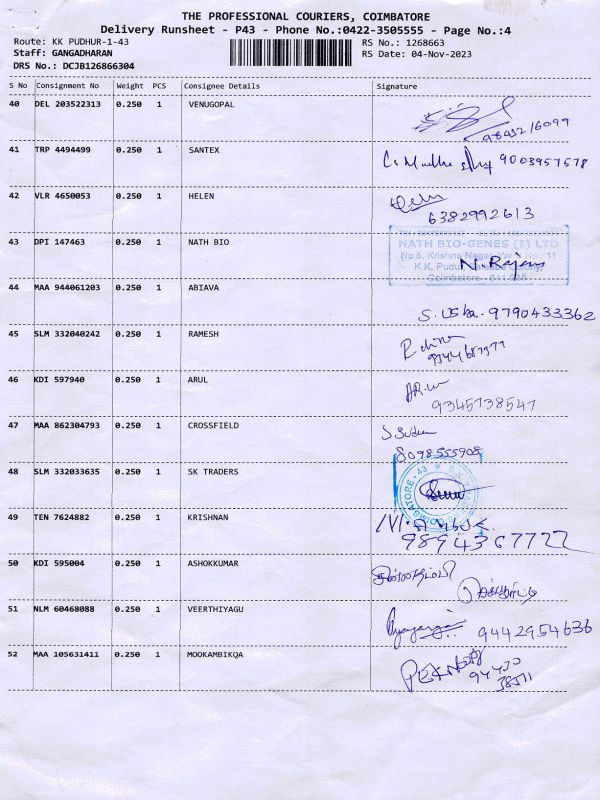 THE PROFESSIONAL COURIERS, COIMBATORE
Delivery Runsheet - P43 - Phone No.:0422-3505555 - Page No.:4
Route: KK PUDHUR-1-43 RS No.: 1268663
Staff: GANGADHARAN RS Date: 04-Nov-2023
DRS No.: DCJB126866304
S No Consignment No Weight PCS Consignee Details Signature
40 DEL 203522313 0.250 1 VENUGOPAL
41 TRP 4494499 0.250 1 SANTEX 9003957578
42 VLR 4650053 0.250 1 HELEN Helen
6382992613
43 DPI 147463 0.250 1 NATH BIO
NATH BIO-GENES (I) LTD
No.5, Krishna Nagar
N. Rajan
K.K. Pudur
Coimbatore
44 MAA 944061203 0.250 1 ABIAVA
S. Usha. 9790433362
45 SLM 332040242 0.250 1 RAMESH
46 KDI 597940 0.250 1 ARUL
9345738547
47 MAA 862304793 0.250 1 CROSSFIELD
8098555908
48 SLM 332033635 0.250 1 SK TRADERS
COIMBATORE-43
49 TEN 7624882 0.250 1 KRISHNAN
9894367722
50 KDI 595004 0.250 1 ASHOKKUMAR
51 NLM 60468088 0.250 1 VEERTHIYAGU
9442954636
52 MAA 105631411 0.250 1 MOOKAMBIKQA
94430
38511